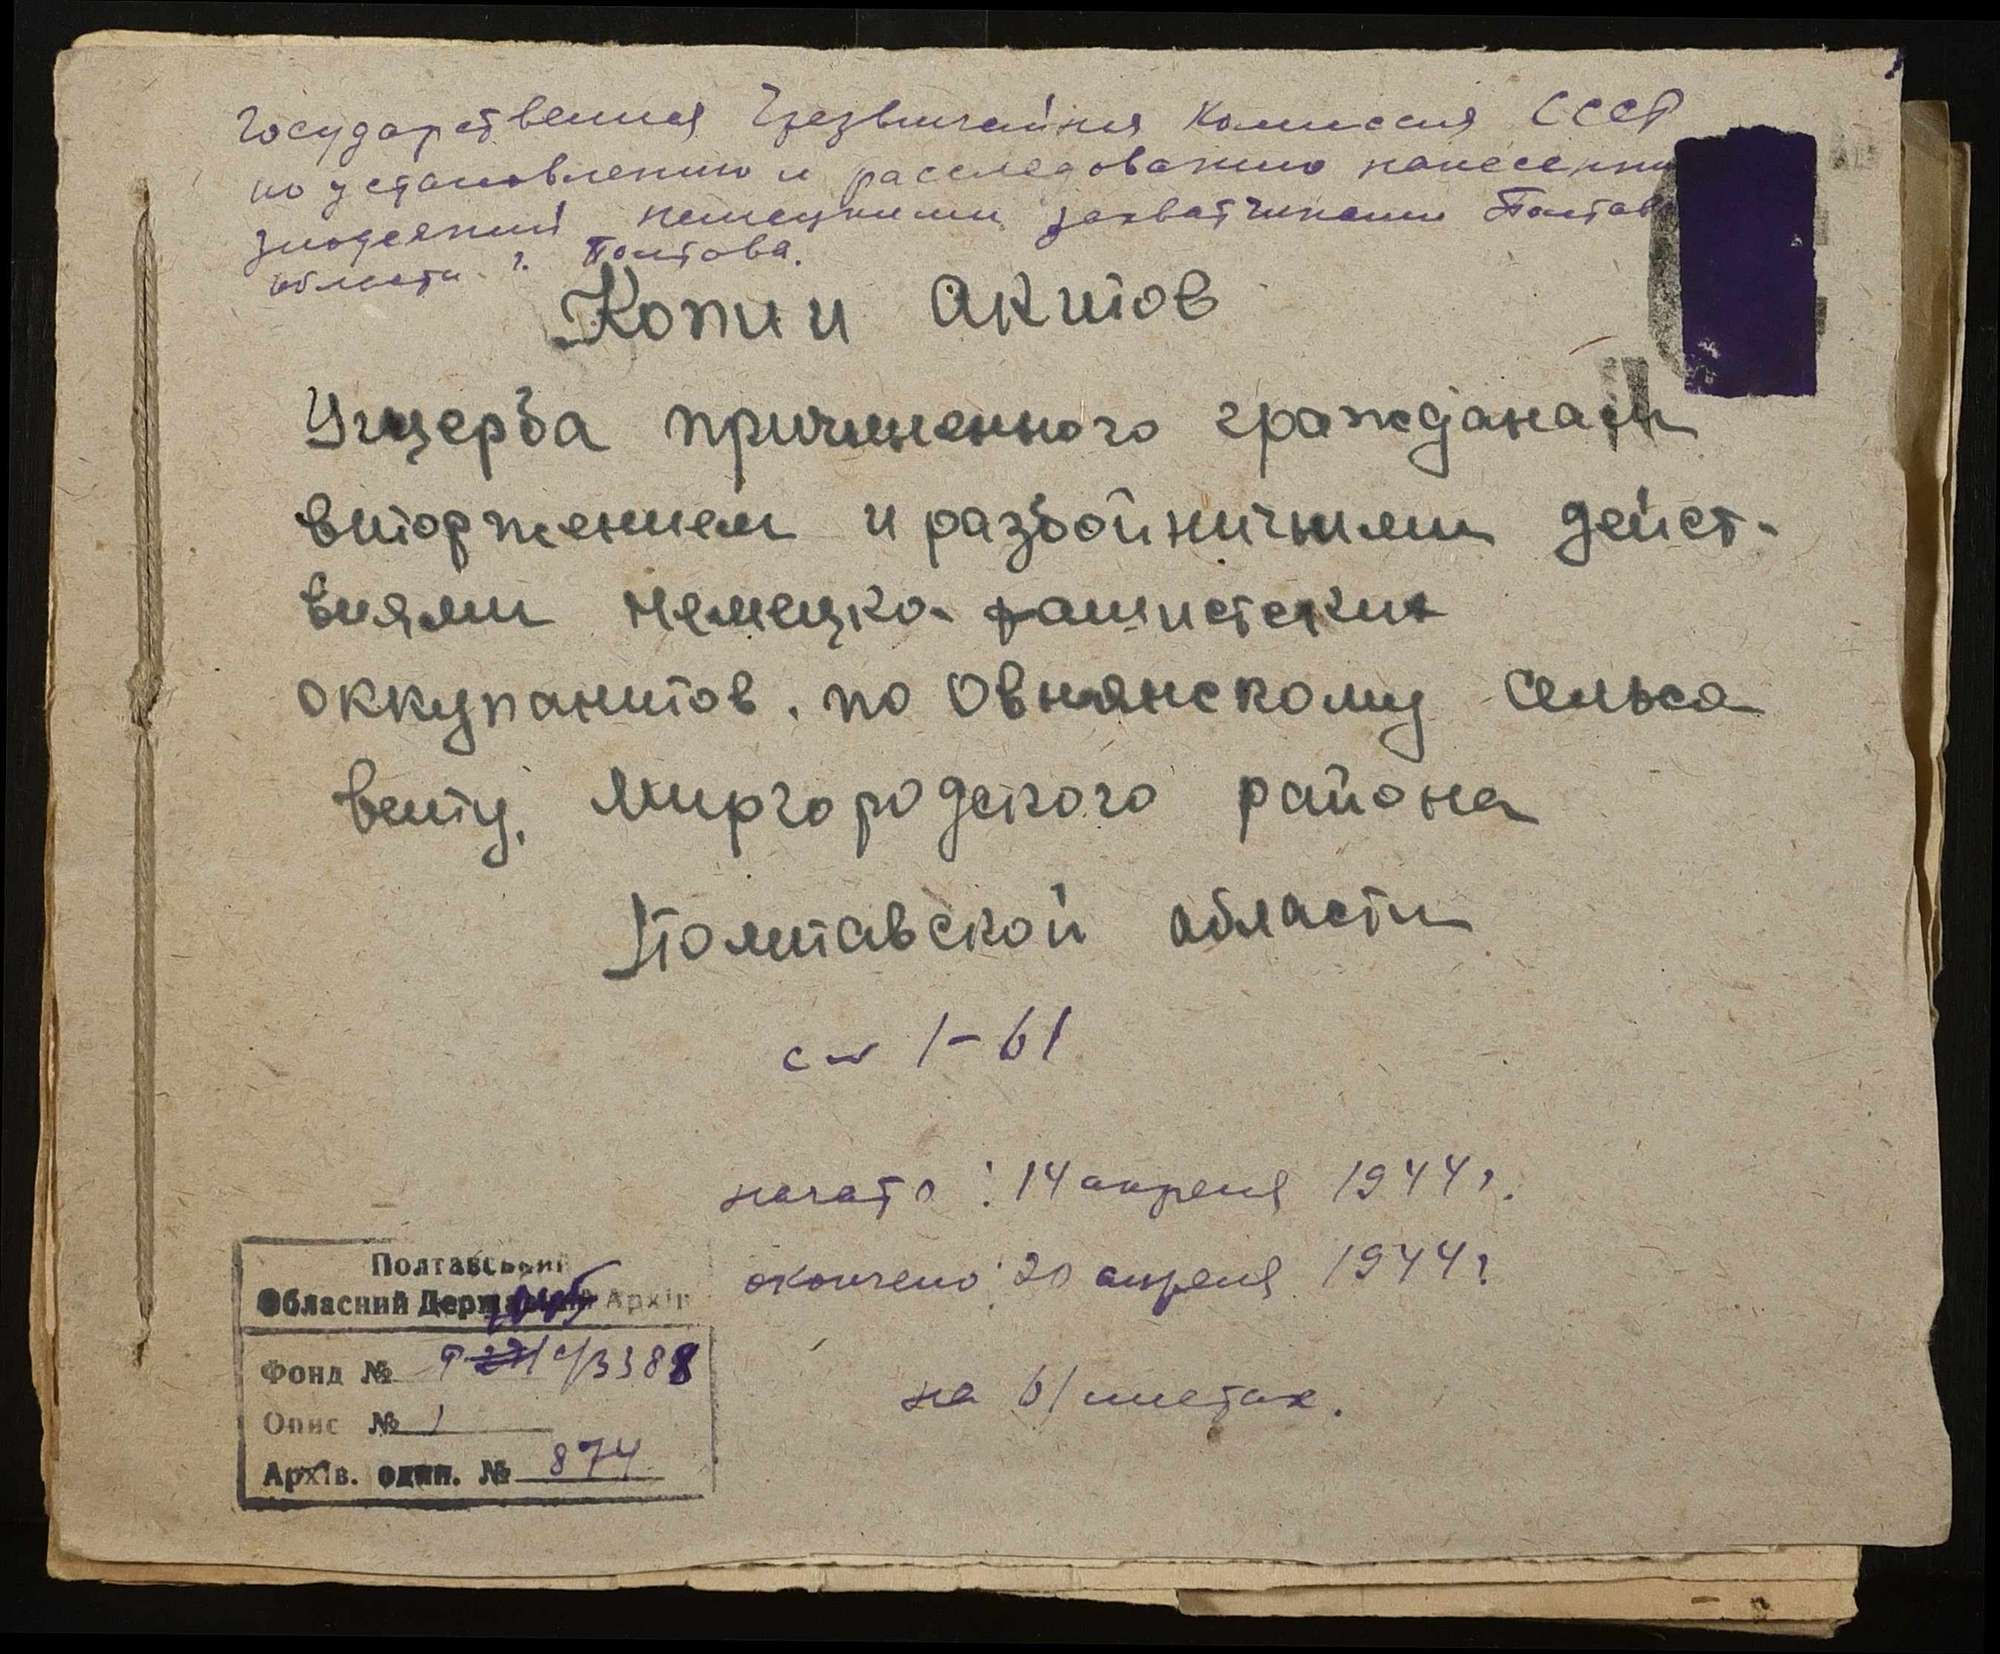 Государственная Чрезвычайная Комиссия СССР
по установлению и расследованию нанесенн
злодеяний немецкими захватчиками Полтав
области г. Полтава.
Копии актов
Ущерба причиненного гражданам
вторжением и разбойничими дейст-
виями немецко-фашистских
оккупантов. по Овнянскому сельсо
вету, Миргородского района
Полтавской области
1-61
начато: 14 апреля 1944 г.
окончено: 20 апреля 1944 г.
на 61 листах.
Полтавський
Обласний Державний Архів
Фонд № Р 3388
Опис № 1
Архів. один. № 874